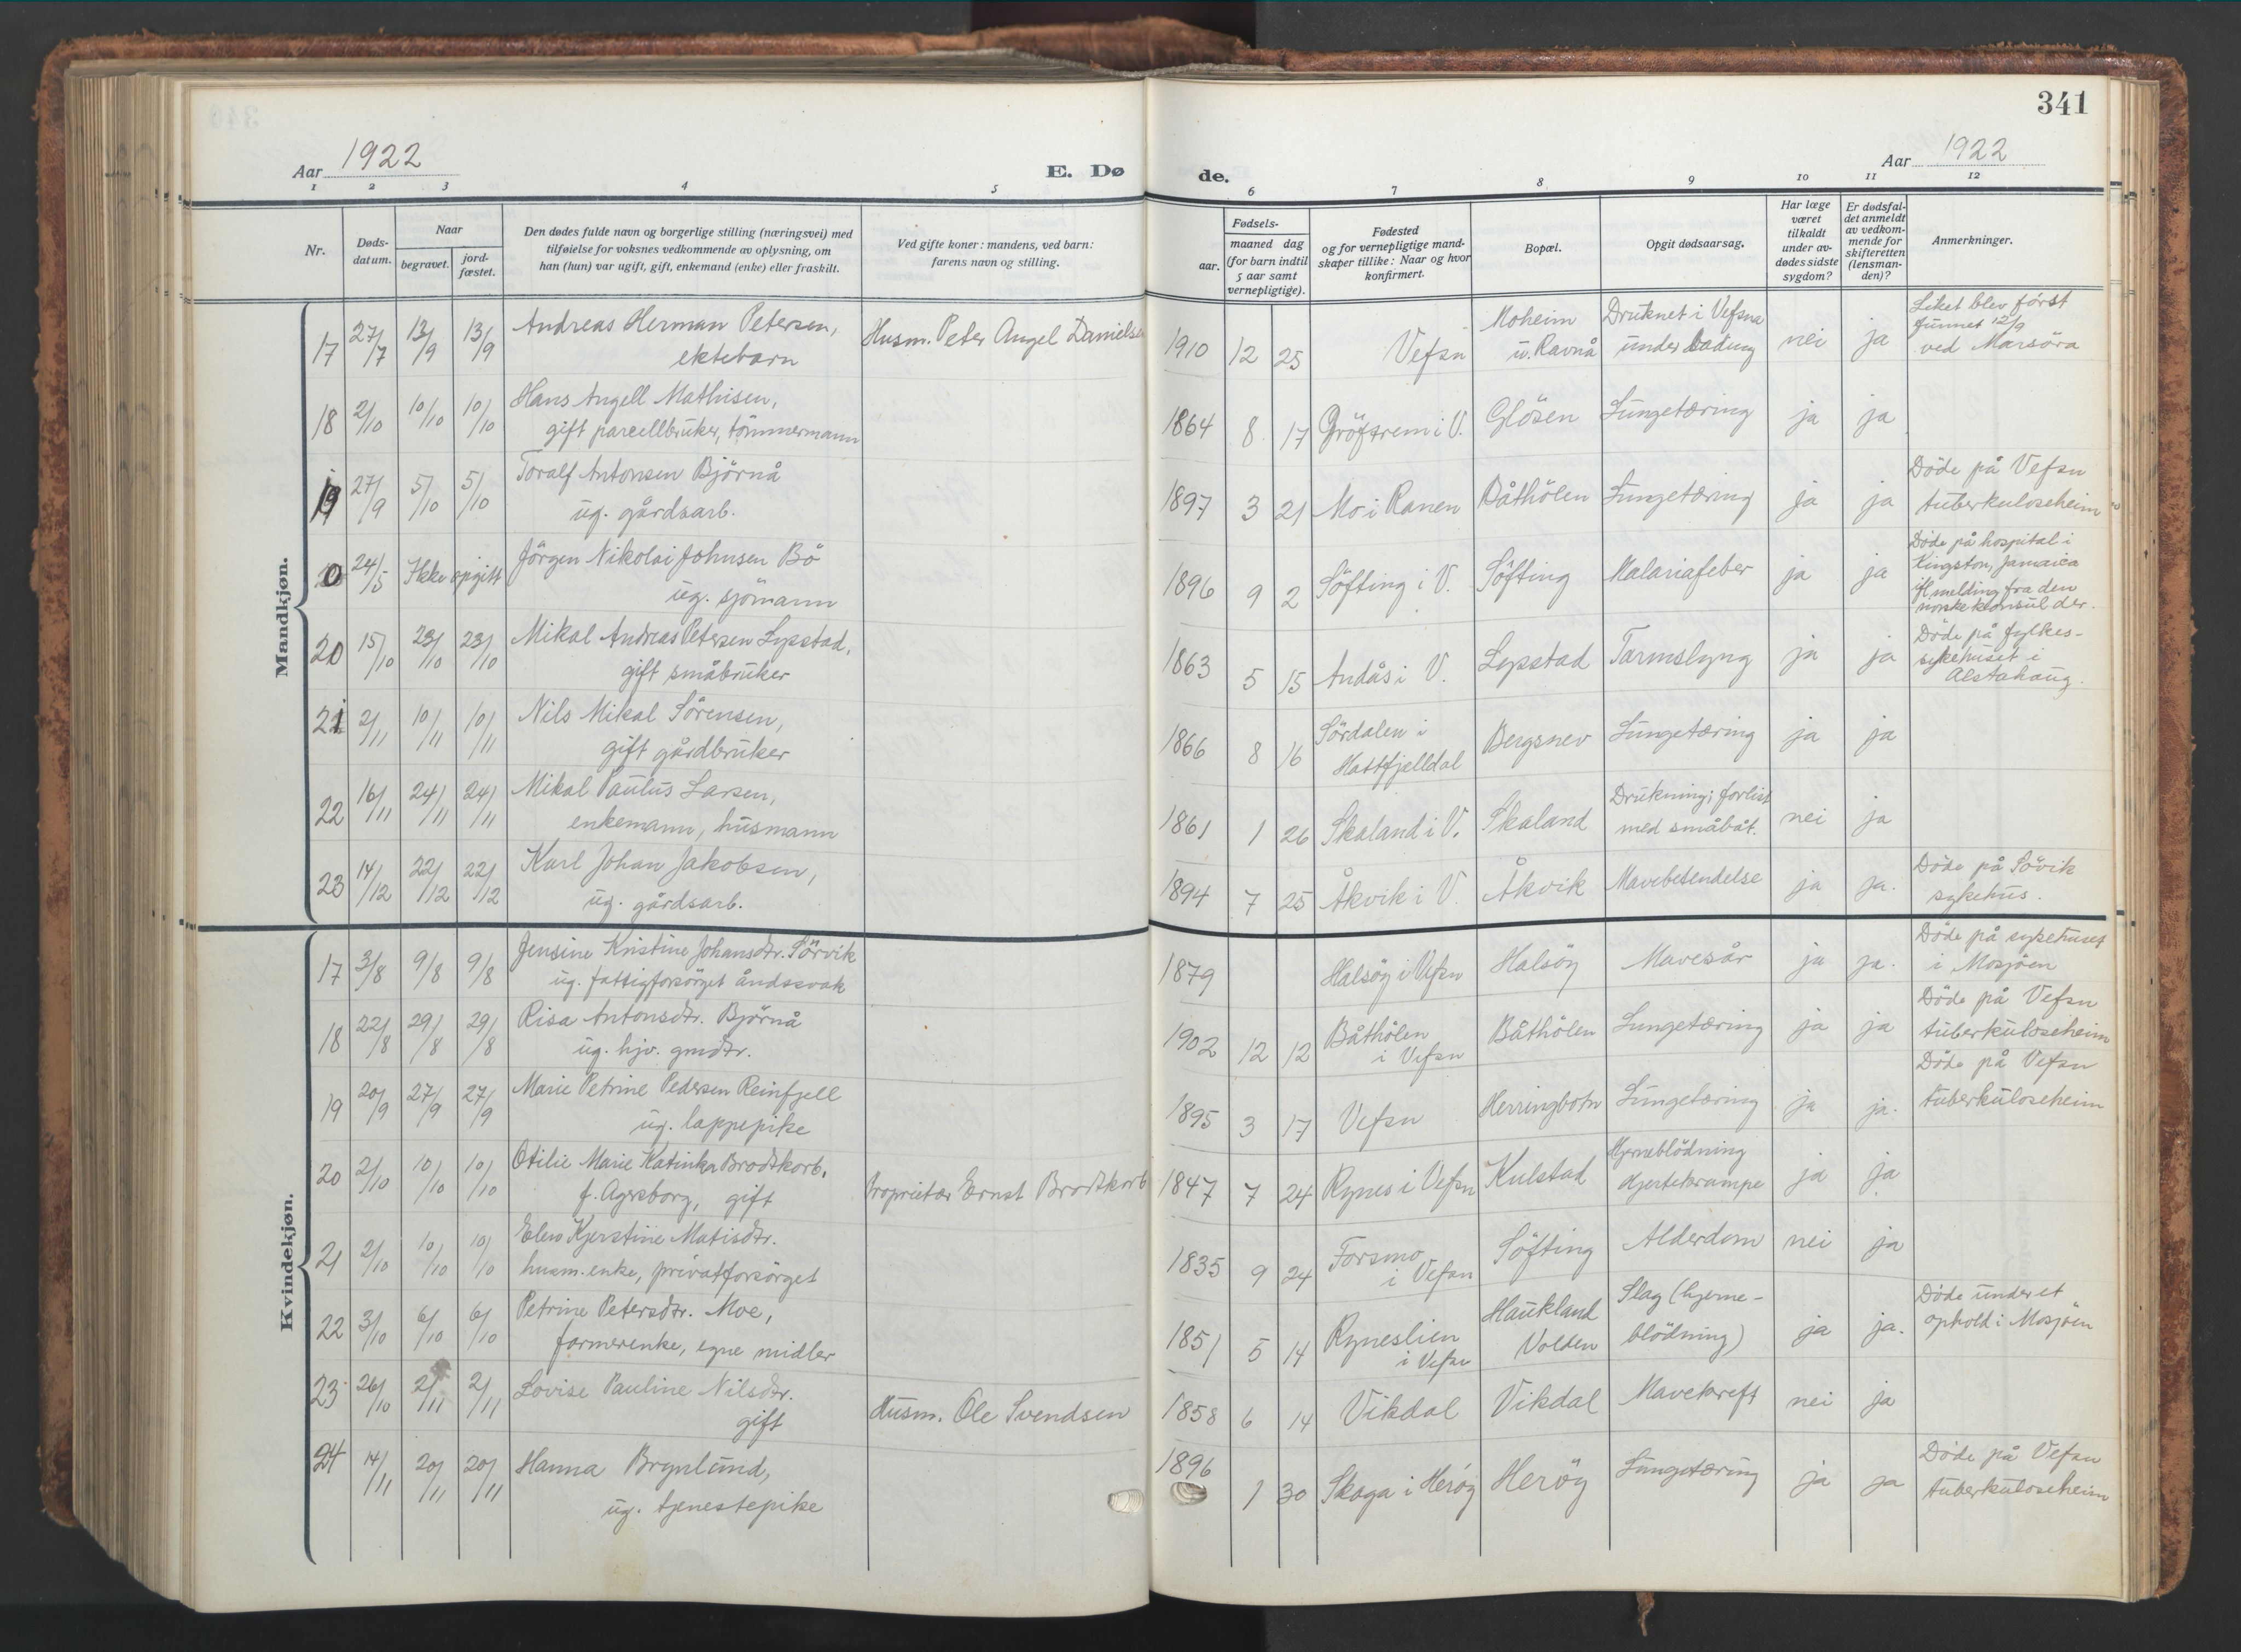 341
Aar 1922
E. Dø
de.
Aar 1922
1 2 3 4 5 6 7 8 9 10 11 12
Nr.
Døds-
datum.
Naar
begravet.
jord-
fæstet.
Den dødes fulde navn og borgerlige stilling (næringsvei) med
tilføielse for voksnes vedkommende av oplysning, om
han (hun) var ugift, gift, enkemand (enke) eller fraskilt.
Ved gifte koner: mandens, ved barn:
farens navn og stilling.
Fødsels-
aar.
maaned dag
(for barn indtil
5 aar samt
vernepligtige).
Fødested
og for vernepligtige mand-
skaper tillike: Naar og hvor
konfirmert.
Bopæl.
Opgit dødsaarsag.
Har læge
været
tilkaldt
under av-
dødes sidste
sygdom?
Er dødsfal-
det anmeldt
av vedkom-
mende for
skifteretten
(lensman-
den)?
Anmerkninger.
Mandkjøn.
17 27/7 13/9 13/9 Andreas Herman Petersen,
ektebarn
Husm. Peter Angel Danielsen
1910 12 25 Vefsn
Moheim
u. Ravnå
Druknet i Vefsna
under badung
nei ja
Liket blev først
funnet 12/9
ved Marsöra
18 2/10 10/10 10/10 Hans Angell Mathisen,
gift parcellbruker, tömmermann
1864 8 17 Gröftrem i V. Glösen Lungetæring ja ja
19 27/9 5/10 5/10 Toralf Antonsen Björnå
ug. gårdsarb.
1897 3 21 Mo i Ranen Båthölen Lungetæring ja ja
Döde på Vefsn
tuberkuloseheim
0 24/5 Ikke opgitt Jörgen Nikolai Johnsen Bö
ug. sjömann
1896 9 2 Söfting i V. Söfting Malariafeber ja ja
Döde på hospital i
Kingston, Jamaica
ifl. melding fra den
norske konsul der.
20 15/10 23/10 23/10 Mikal Andreas Petersen Lysstad,
gift småbruker
1863 5 15 Andås i V. Lysstad Tarmslyng ja ja
Döde på fylkes-
sykehuset i
Alstahaug.
21 2/11 10/11 10/11 Nils Mikal Sörensen,
gift gårdbruker
1866 8 16 Sördalen i
Hattfjelldal
Bergsnev Lungetæring ja ja
22 16/11 24/11 24/11 Mikal Paulus Larsen,
enkemann, husmann
1861 1 26 Skaland i V. Skaland
Drukning; forlist
med småbåt.
nei ja
23 14/12 22/12 22/12 Karl Johan Jakobsen,
ug. gårdsarb.
1894 7 25 Åkvik i V. Åkvik Mavebetendelse ja ja.
Döde på Sövik
sykehus.
Kvindekjøn.
17 3/8 9/8 9/8 Jensine Kristine Johansdtr. Sörvik
ug. fattigforsörget åndssvak
1879 Halsöy i Vefsn Halsöy Mavesår ja ja.
Döde på sykehuset
i Mosjöen
18 22/8 29/8 29/8 Risa Antonsdtr. Björnå
ug. hjv. gmdtr.
1902 12 12 Båthölen
i Vefsn
Båthölen Lungetæring ja ja
Döde på Vefsn
tuberkuloseheim
19 20/9 27/9 27/9 Marie Petrine Pedersen Reinfjell
ug. lappepike
1895 3 17 Vefsn Herringbotn Lungetæring ja ja.
Döde på Vefsn
tuberkuloseheim
20 2/10 10/10 10/10 Otilie Marie Katinka Brodtkorb,
f. Agersborg, gift
Proprietær Ernst Brodtkorb
1847 7 24 Rynes i Vefsn Kulstad
Hjerneblödning
Hjertekrampe
ja ja
21 2/10 10/10 10/10 Elen Kjerstine Matisdtr.
husm.enke, privatforsörget
1835 9 24 Forsmo
i Vefsn
Söfting Alderdom nei ja
22 3/10 6/10 6/10 Petrine Petersdtr. Moe,
farmerenke, egne midler
1851 5 14 Ryneslien
i Vefsn
Haukland
Volden
Slag (hjerne-
blödning)
ja ja.
Döde under et
ophold i Mosjöen
23 26/10 2/11 2/11 Lovise Pauline Nilsdtr.
gift
Husm. Ole Svendsen
1858 6 14 Vikdal Vikdal Mavekreft nei ja
24 14/11 20/11 20/11 Hanna Brynlund,
ug. tjenestepike
1896 1 30 Skaga i Heröy Heröy Lungetæring ja ja
Döde på Vefsn
tuberkuloseheim